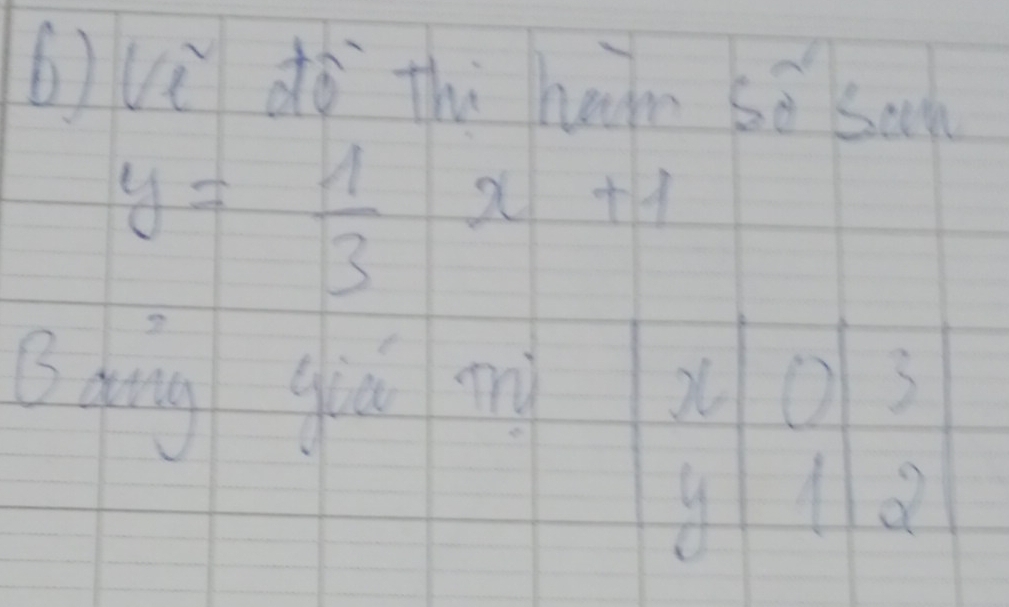 b) Vẽ đồ thị hàm số sau
y = 1/3 x + 1
Bảng giá trị | x | 0 | 3 |
| y | 1 | 2 |